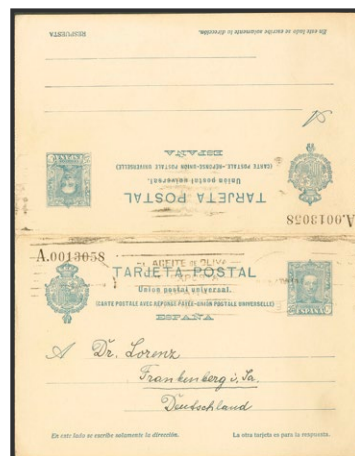 RESPUESTA
En este lado se escribe solamente la dirección.
A
ESPAÑA
(CARTE POSTALE-RÉPONSE-UNION POSTALE UNIVERSELLE)
Unión postal universal.
TARJETA POSTAL
ESPAÑA
A.0013058
A.0013058
ACEITE DE OLIVA
TARJETA POSTAL
Unión postal universal.
(CARTE POSTALE AVEC RÉPONSE PAYÉE-UNION POSTALE UNIVERSELLE)
ESPAÑA
ESPAÑA
A Dr. Lorenz
Frankenberg i. Sa.
Deutschland
En este lado se escribe solamente la dirección.
La otra tarjeta es para la respuesta.